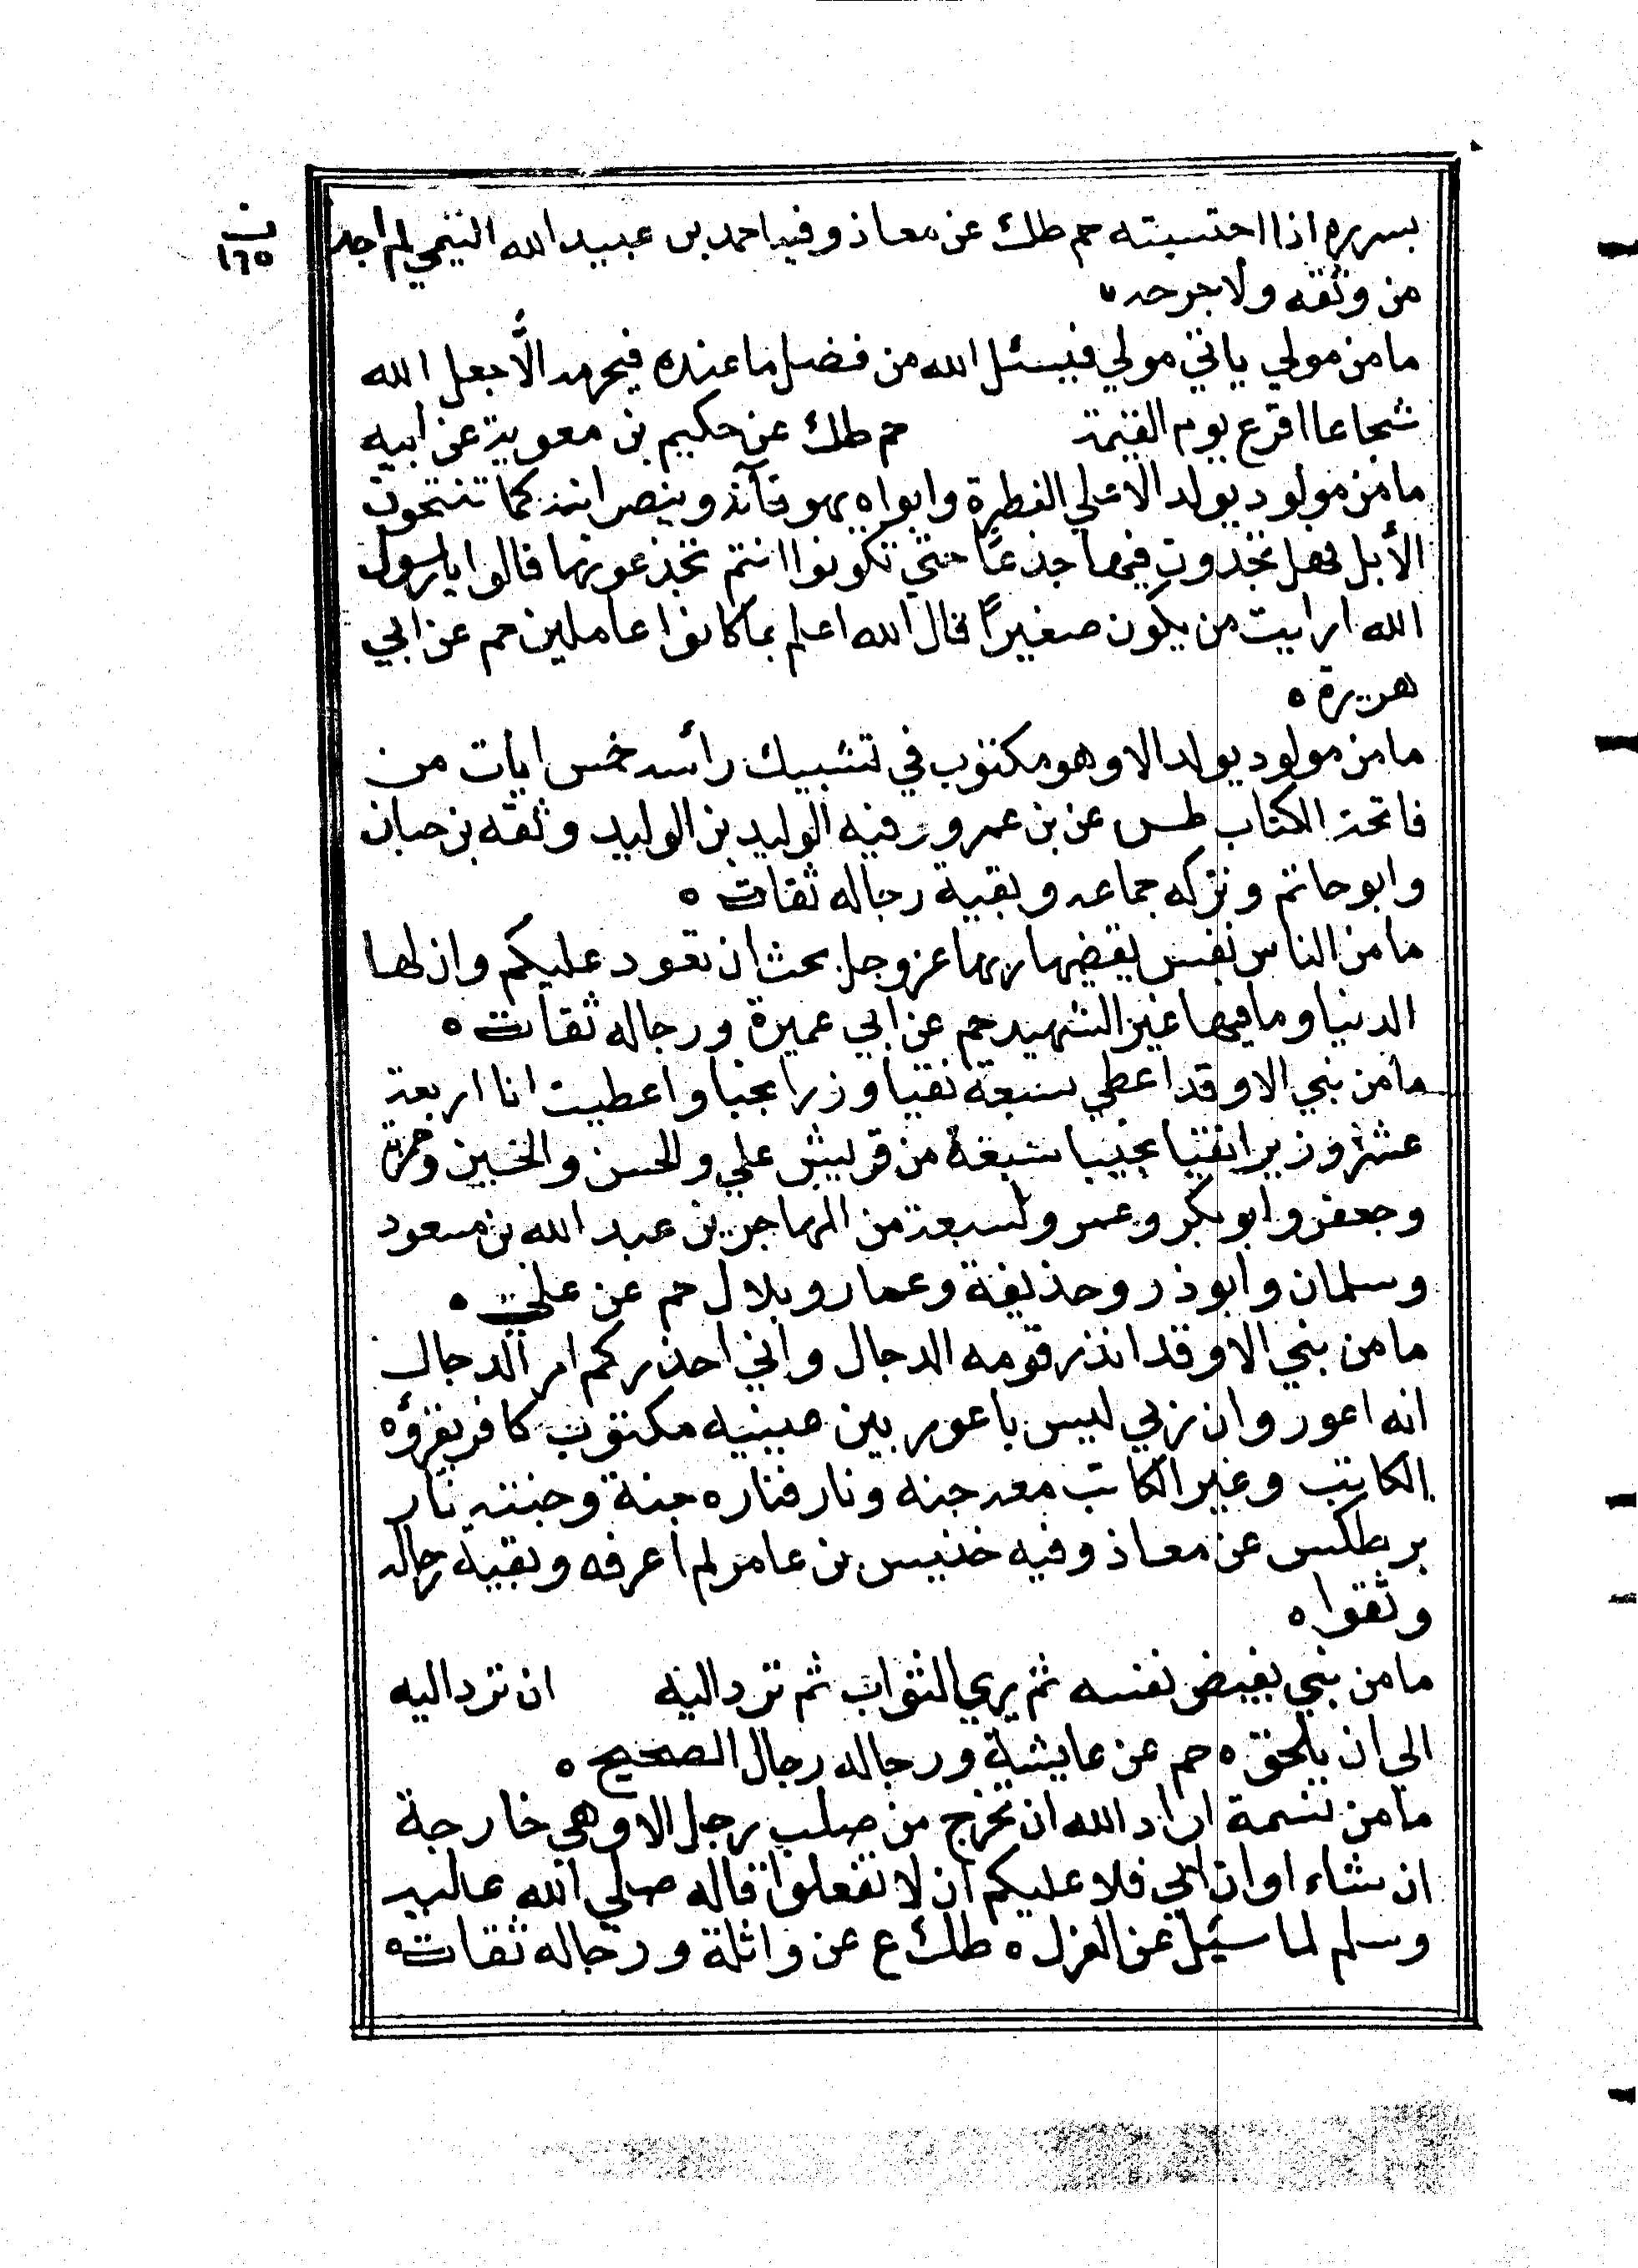 بسرره اذا احتسبته حم طك عن معاذ وفيه احمد بن عبيد الله التيمي لم اجد
ن
١٦٥
من وثقه ولا جرحه
ما من مولي ياتي مولي فيسئل الله من فضل ما عنده فيحرمه الَّا جعل الله
شجاعا اقرع يوم القيمة حم طك عن حكيم بن معوية عن ابيه
ما من مولود يولد الا علي الفطرة وابواه يهودانه وينصرانه كما تنتجون
الأبل فهل تجدون فيها جذعًا حتي تكونوا انتم تجذعونها قالوا يا رسول
الله ارايت من يكون صغيرًا قال الله اعلم بما كانوا عاملين حم عن ابي
هريرة ه
ما من مولود يولد الا وهو مكتوب في تشبيك رأسه خمس ايات من
فاتحة الكتاب طس عن بن عمرو وفيه الوليد بن الوليد وثقه بن حبان
وابو حاتم وتركه جماعه وبقية رجاله ثقات ه
ما من الناس نفس يقبضها ربها عز وجل بحث ان تعود عليكم وان لها
الدنيا وما فيها غير الشهيد حم عن ابي عميرة ورجاله ثقات ه
ما من نبي الا وقد اعطي سبعة نقبا وزرا نجبا واعطيت انا اربعة
عشر وزيرا نقيبا نجيبا سبعة من قريش علي والحسن والحسين وحمزة
وجعفر وابو بكر وعمر ولسبعة من المهاجرين عبد الله بن مسعود
وسلمان وابو ذر وحذيفة وعمار وبلال حم عن علي ه
ما من نبي الا وقد انذر قومه الدجال واني احذركم امر الدجال
انه اعور وان ربي ليس باعور بين عينيه مكتوب كافر يقرؤه
الكاتب وغير الكاتب معه جنه ونار فناره جنة وجنته نار
بر طكس عن معاذ وفيه خنيس بن عامر لم اعرفه وبقية رجاله
وثقوا ه
ما من نبي يقبض نفسه ثم يري الثواب ثم ترد اليه ان ترد اليه
الي ان يلحق ه حم عن عايشة ورجاله رجال الصحيح ه
ما من نسمة اراد الله ان تخرج من صلب رجل الا وهي خارجة
ان شاء او ان ابي فلا عليكم ان لا تفعلوا قاله صلي الله عليه
وسلم لما سئيل عن العزل ه طك ع عن واثلة ورجاله ثقات ه